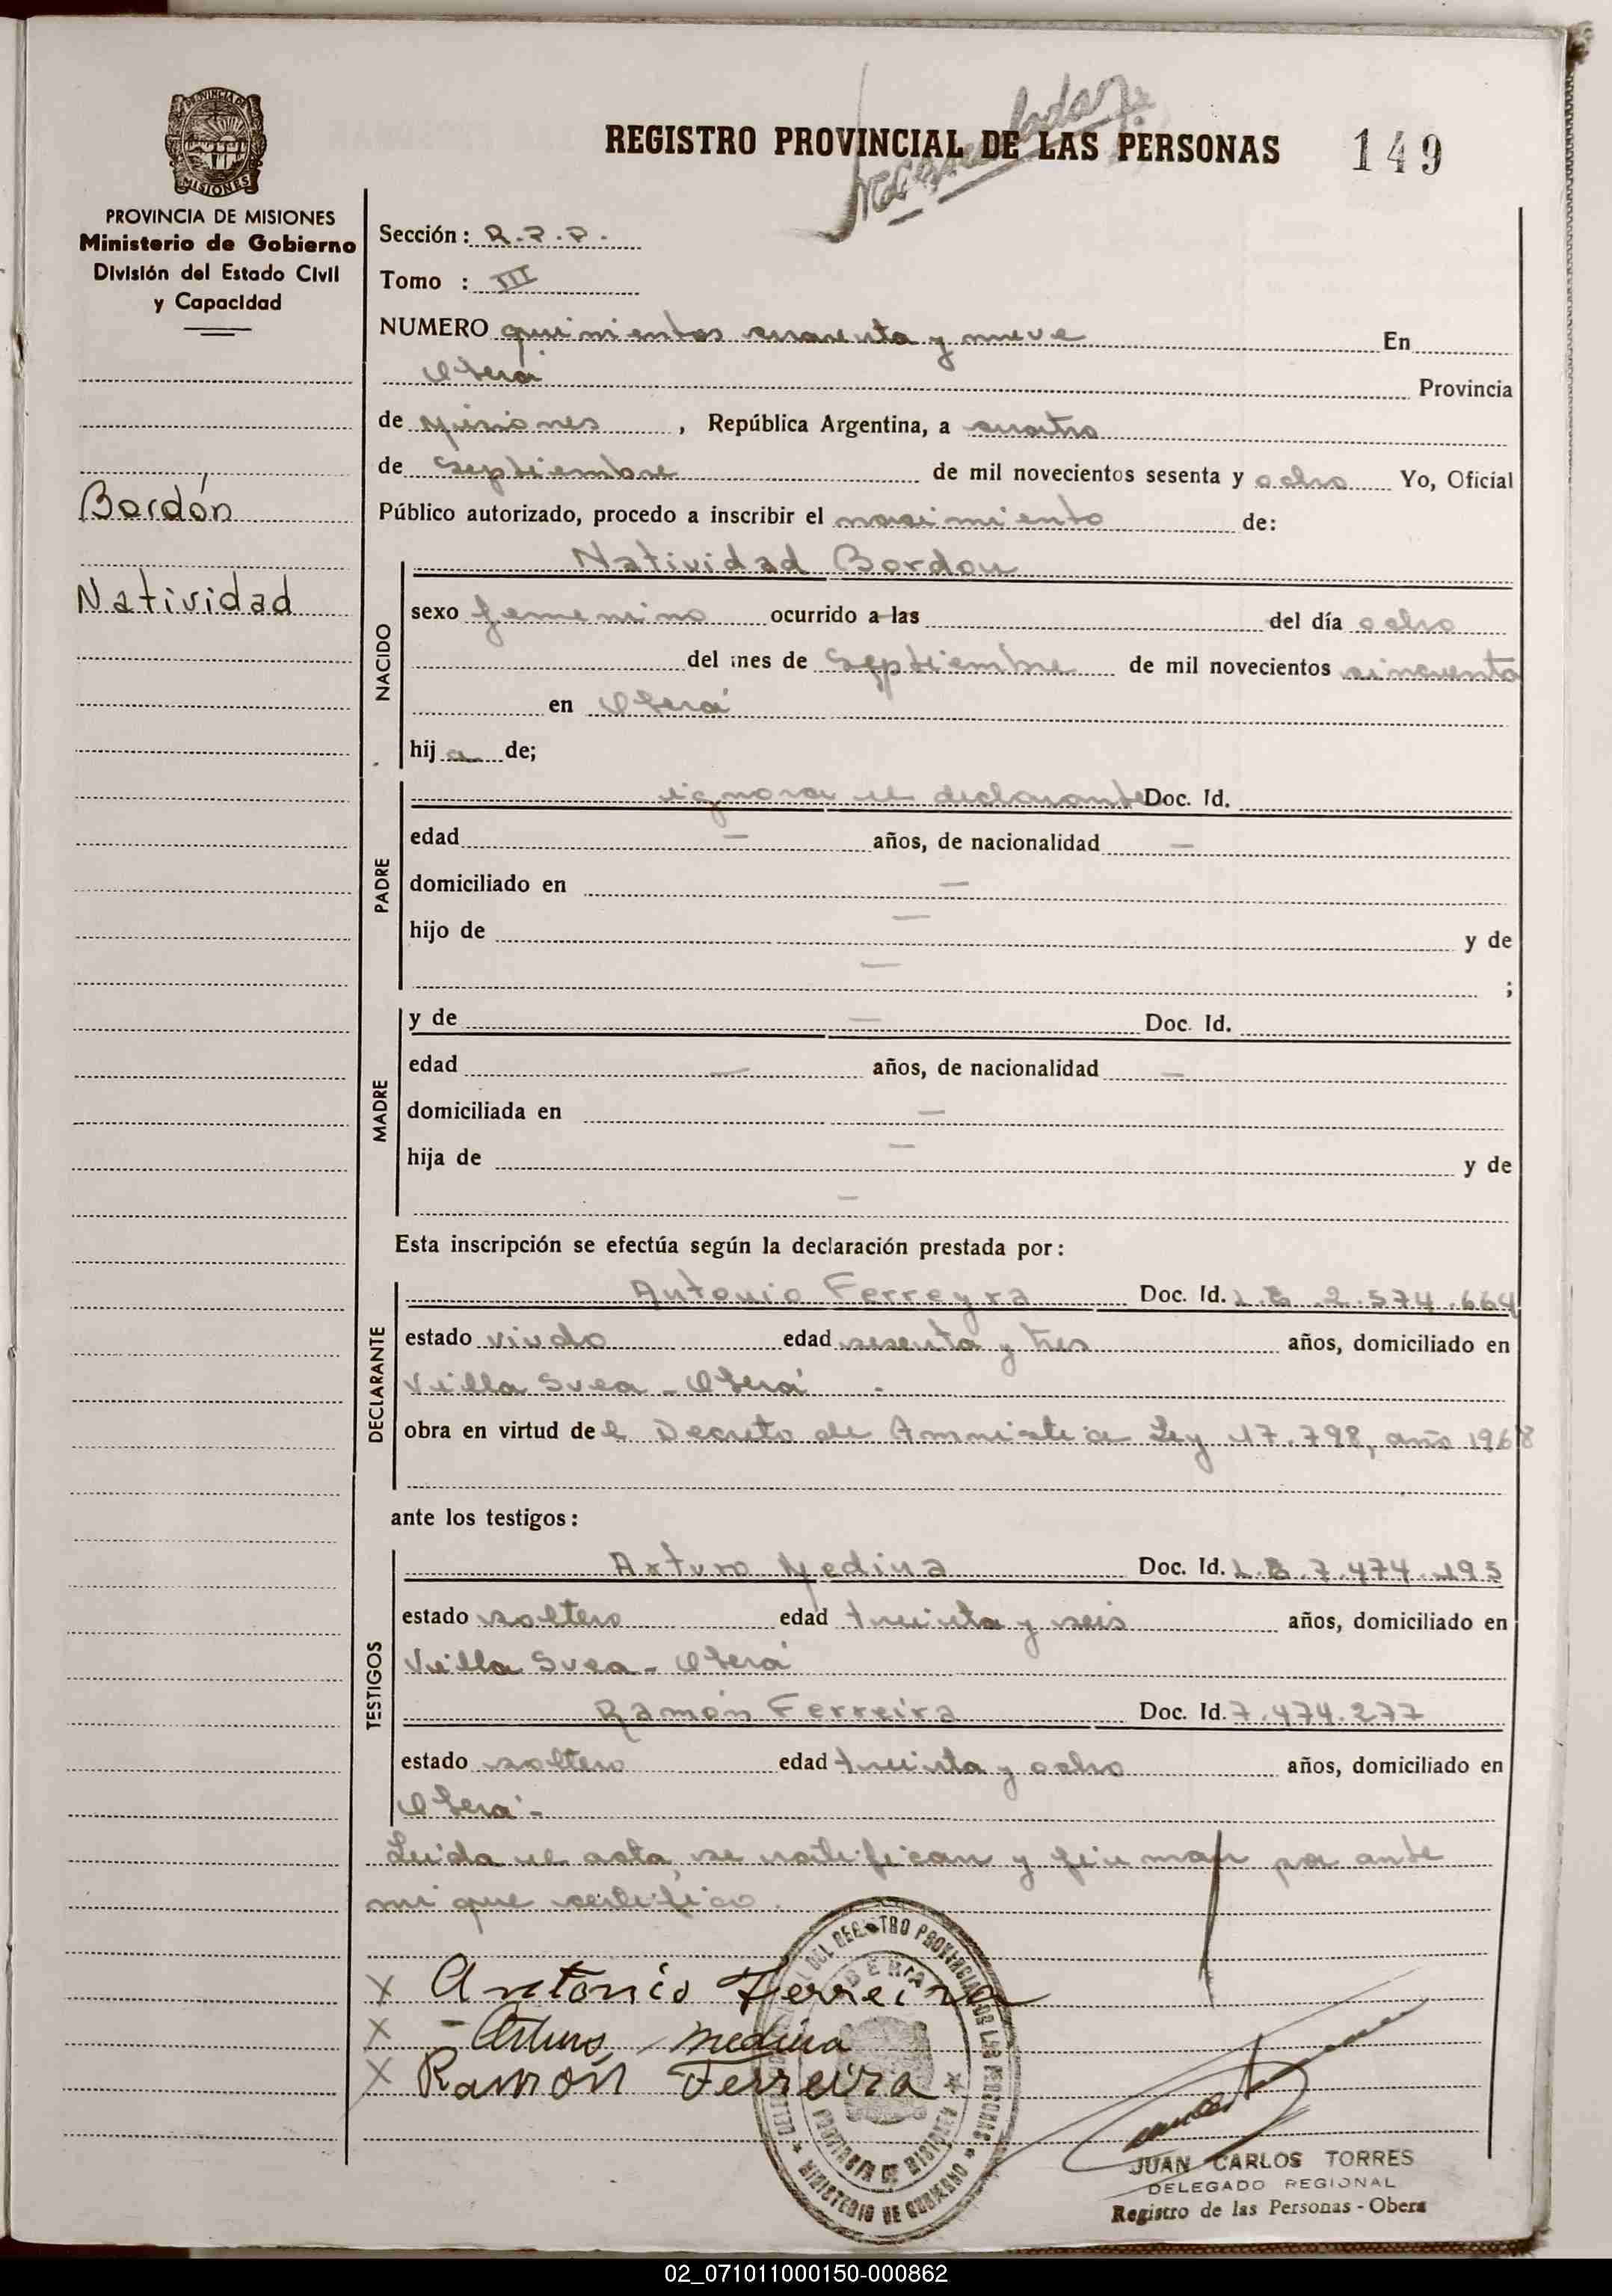 REGISTRO PROVINCIAL DE LAS PERSONAS 149
PROVINCIA DE MISIONES
PROVINCIA DE MISIONES
Ministerio de Gobierno
División del Estado Civil
y Capacidad
Bordón
Natividad
Sección: R.P.P.
Tomo : III
NUMERO quinientos cuarenta y nueve En
Oberá Provincia
de Misiones, República Argentina, a cuatro
de Septiembre de mil novecientos sesenta y ocho Yo, Oficial
Público autorizado, procedo a inscribir el nacimiento de:
NACIDO
Natividad Bordon
sexo femenino ocurrido a las del día ocho
del mes de Septiembre de mil novecientos cincuenta
en Oberá
hij a de;
PADRE
ignora el declarante Doc. Id.
edad — años, de nacionalidad —
domiciliado en —
hijo de — y de
— ;
MADRE
y de — Doc. Id.
edad — años, de nacionalidad —
domiciliada en —
hija de — y de
—
Esta inscripción se efectúa según la declaración prestada por:
DECLARANTE
Antonio Ferreyra Doc. Id. L.E. 2.574.664
estado viudo edad sesenta y tres años, domiciliado en
Villa Svea - Oberá.
obra en virtud del Decreto de Amnistia Ley 17.798, año 1968
ante los testigos:
TESTIGOS
Arturo Medina Doc. Id. L.E. 7.474.195
estado soltero edad treinta y seis años, domiciliado en
Villa Svea - Oberá
Ramón Ferreira Doc. Id. 7.474.277
estado soltero edad treinta y ocho años, domiciliado en
Oberá.-
Leida el acta, se ratifican y firman por ante
mi que certifico.
X Antonio Ferreira
X - Arturo Medina
X Ramón Ferreira
DEL REGISTRO PROVINCIAL DE LAS PERSONAS
OBERA
PROVINCIA DE MISIONES
MINISTERIO DE GOBIERNO
JUAN CARLOS TORRES
DELEGADO REGIONAL
Registro de las Personas - Obera
02_071011000150-000862